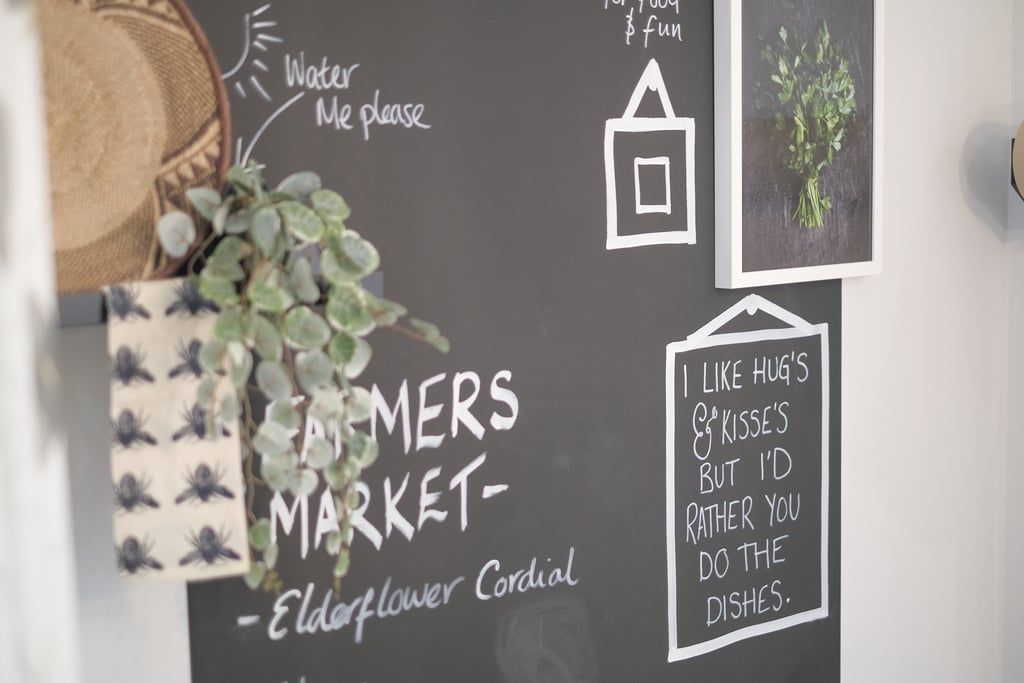 & fun
Water
Me please
FARMERS
MARKET-
- Elderflower Cordial
I LIKE HUG'S
& KISSE'S
BUT I'D
RATHER YOU
DO THE
DISHES.